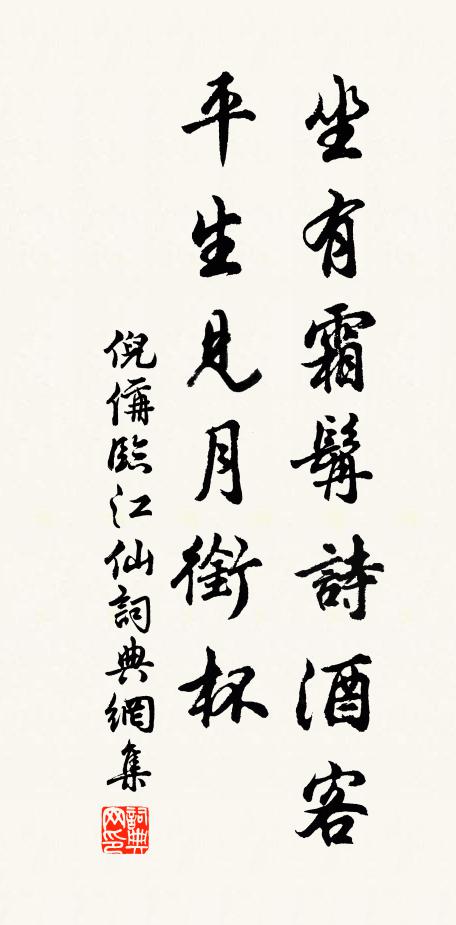 坐有霜髯詩酒客
平生見月銜杯
倪偁臨江仙詞典網集
詞典网印